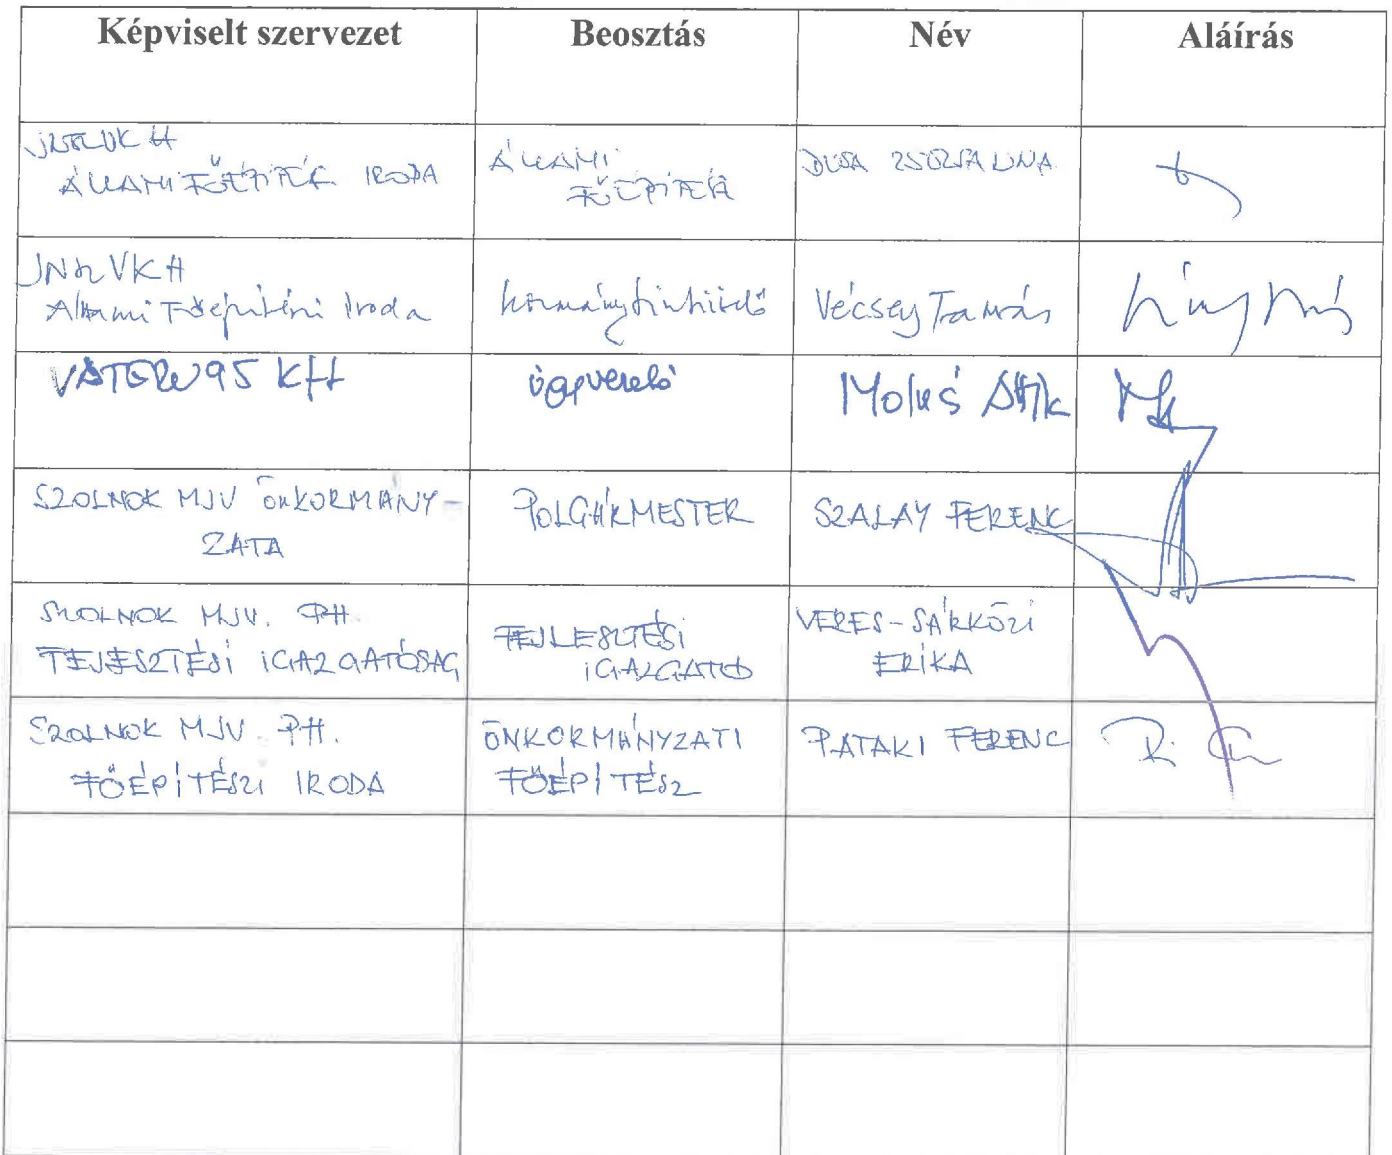 Képviselt szervezet Beosztás Név Aláírás
ÁLLAMI FŐÉPÍTÉSZ IRODA
ÁLLAMI
FŐÉPÍTÉSZ
DUSA ZSÓFIA ANNA
JNSZVKH
Állami Főépítészi Iroda
kormánytisztviselő
Vécsey Tamás
VÁTERV95 Kft
ügyvezető
SZOLNOK MJV ÖNKORMÁNY-
ZATA
POLGÁRMESTER
SZALAY FERENC
SZOLNOK MJV. PH.
FEJLESZTÉSI IGAZGATÓSÁG
FEJLESZTÉSI
IGAZGATÓ
VERES-SÁRKÖZI
ERIKA
SZOLNOK MJV. PH.
FŐÉPÍTÉSZI IRODA
ÖNKORMÁNYZATI
FŐÉPÍTÉSZ
PATAKI FERENC